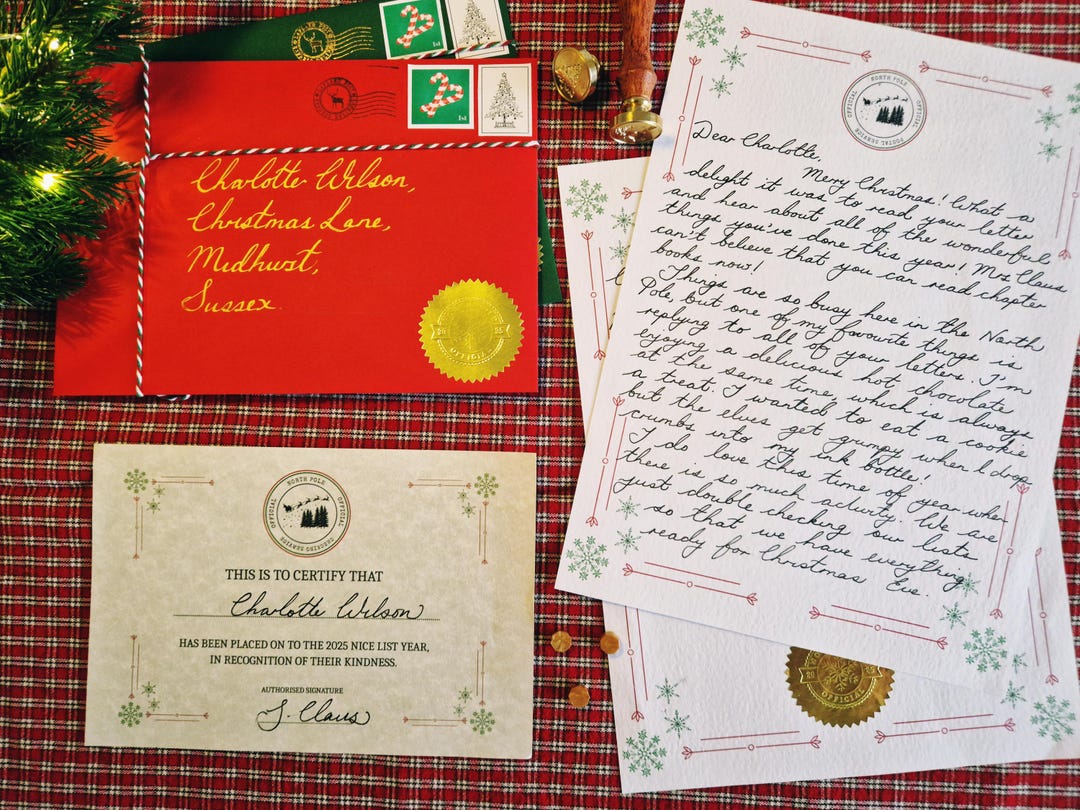 1st
Charlotte Wilson,
Christmas Lane,
Midhurst,
Sussex.
20 25
OFFICIAL
NORTH POLE
OFFICIAL OFFICIAL
POSTAL SERVICE
Dear Charlotte,
Merry Christmas! What a
delight it was to read your letter
and hear about all of the wonderful
things you've done this year! Mrs Claus
can't believe that you can read chapter
books now!
Things are so busy here in the North
Pole, but one of my favourite things is
replying to all of your letters. I'm
enjoying a delicious hot chocolate
at the same time, which is always
a treat. I wanted to eat a cookie
but the elves get grumpy when I drop
crumbs into my ink bottle!
I do love this time of year when
there is so much activity. We are
just double checking our lists
so that we have everything
ready for Christmas Eve.
NORTH POLE
OFFICIAL OFFICIAL
THIS IS TO CERTIFY THAT
Charlotte Wilson
HAS BEEN PLACED ON TO THE 2025 NICE LIST YEAR,
IN RECOGNITION OF THEIR KINDNESS.
AUTHORISED SIGNATURE
S. Claus
OFFICIAL